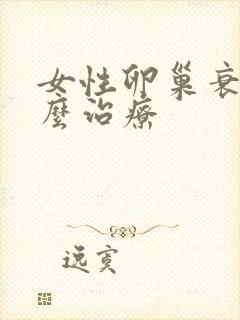 女性卵巢衰
麼治療
逸寞